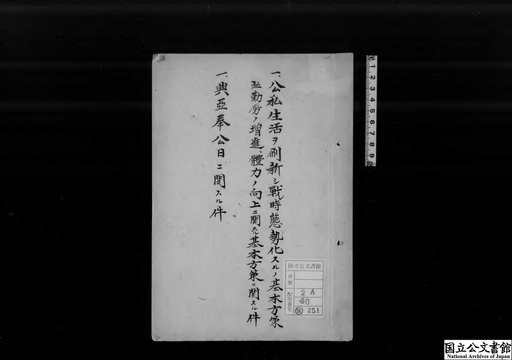 一、公私生活ヲ刷新シ戦時態勢化スルノ基本方策
並勤労ノ増進、體力ノ向上ニ関スル基本方策ニ関スル件
一、興亜奉公日ニ関スル件
国立公文書館
分類
配架番号
2A
40
251
国立公文書館
National Archives of Japan